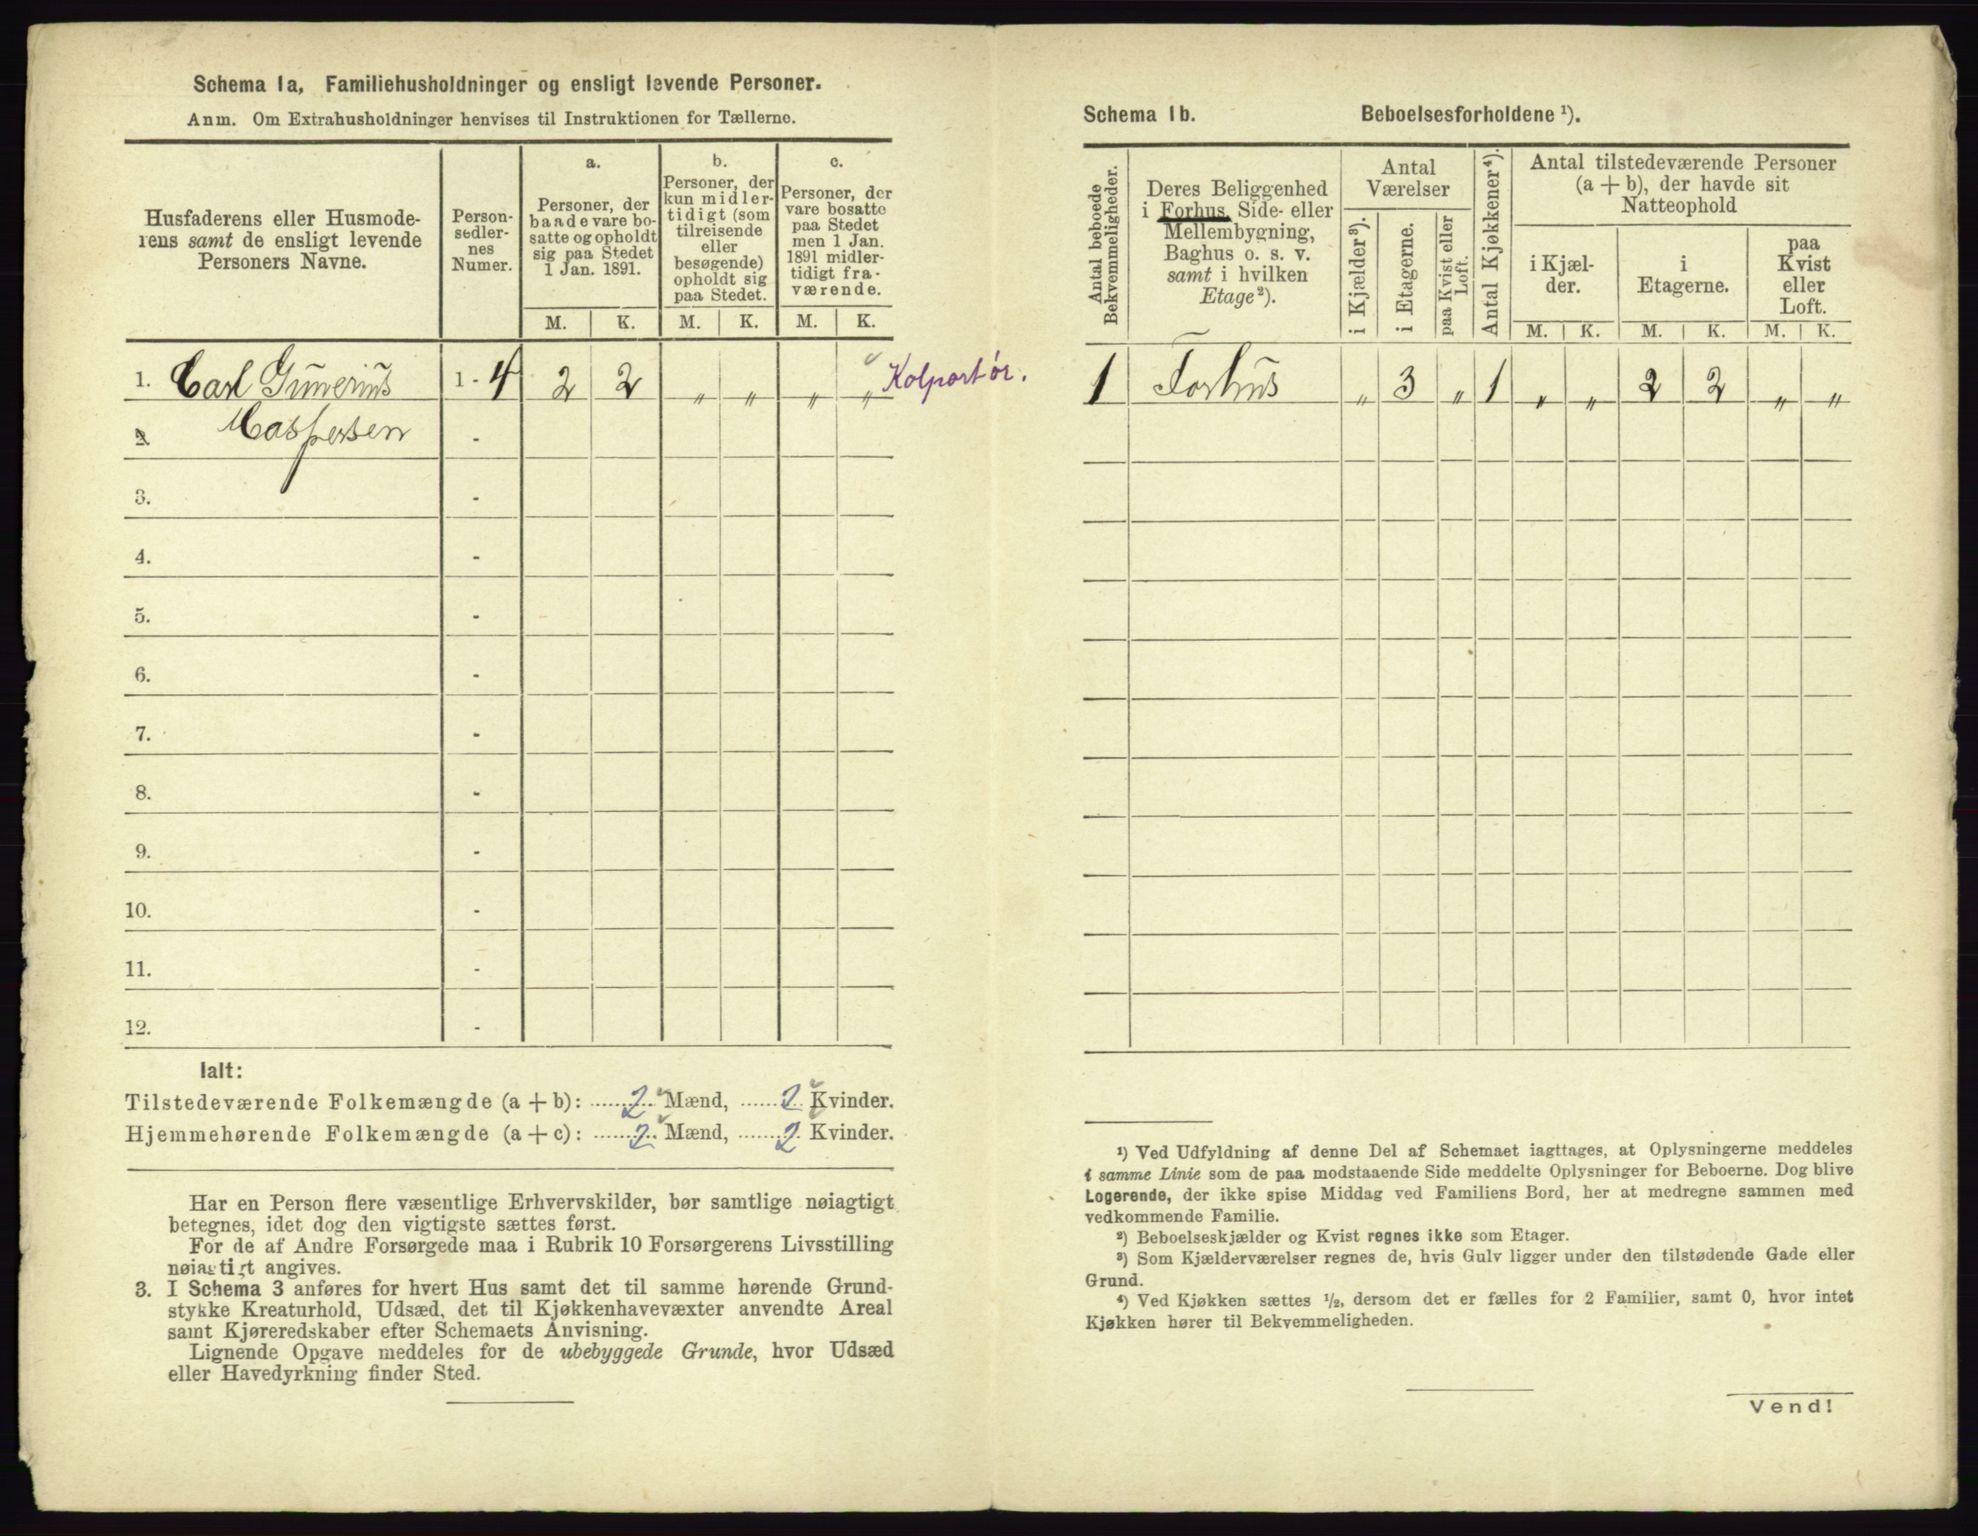 Schema 1a, Familiehusholdninger og ensligt levende Personer.
Anm. Om Extrahusholdninger henvises til Instruktionen for Tællerne.
Husfaderens eller Husmoderens samt de ensligt levende Personers Navne.
Personsedlernes Numer.
a.
Personer, der baade vare bosatte og opholdt sig paa Stedet 1 Jan. 1891.
b.
Personer, der kun midlertidigt (som tilreisende eller besøgende) opholdt sig paa Stedet.
c.
Personer, der vare bosatte paa Stedet men 1 Jan. 1891 midlertidigt fraværende.
M. K. M. K. M. K.
1. Carl Gunerius 1 - 4 2 2 " " " " Kolportør.
2 Caspersen -
3. -
4. -
5. -
6. -
7. -
8. -
9. -
10. -
11. -
12. -
Ialt:
Tilstedeværende Folkemængde (a + b): 2 Mænd, 2 Kvinder.
Hjemmehørende Folkemængde (a + c): 2 Mænd, 2 Kvinder.
Har en Person flere væsentlige Erhvervskilder, bør samtlige nøiagtigt
betegnes, idet dog den vigtigste sættes først.
For de af Andre Forsørgede maa i Rubrik 10 Forsørgerens Livsstilling
nøiagtigt angives.
3. I Schema 3 anføres for hvert Hus samt det til samme hørende Grund-
stykke Kreaturhold, Udsæd, det til Kjøkkenhavevæxter anvendte Areal
samt Kjøreredskaber efter Schemaets Anvisning.
Lignende Opgave meddeles for de ubebyggede Grunde, hvor Udsæd
eller Havedyrkning finder Sted.
Schema 1b. Beboelsesforholdene ¹).
Antal beboede Bekvemmeligheder.
Deres Beliggenhed i Forhus, Side- eller Mellembygning, Baghus o. s. v. samt i hvilken Etage²).
Antal Værelser
i Kjælder³).
i Etagerne.
paa Kvist eller Loft.
Antal Kjøkkener⁴).
Antal tilstedeværende Personer (a + b), der havde sit Natteophold
i Kjælder.
i Etagerne.
paa Kvist eller Loft.
M. K. M. K. M. K.
1 Forhus " 3 " 1 " " 2 2 " "
¹) Ved Udfyldning af denne Del af Schemaet iagttages, at Oplysningerne meddeles
i samme Linie som de paa modstaaende Side meddelte Oplysninger for Beboerne. Dog blive
Logerende, der ikke spise Middag ved Familiens Bord, her at medregne sammen med
vedkommende Familie.
²) Beboelseskjælder og Kvist regnes ikke som Etager.
³) Som Kjælderværelser regnes de, hvis Gulv ligger under den tilstødende Gade eller
Grund.
⁴) Ved Kjøkken sættes ½, dersom det er fælles for 2 Familier, samt 0, hvor intet
Kjøkken hører til Bekvemmeligheden.
Vend!